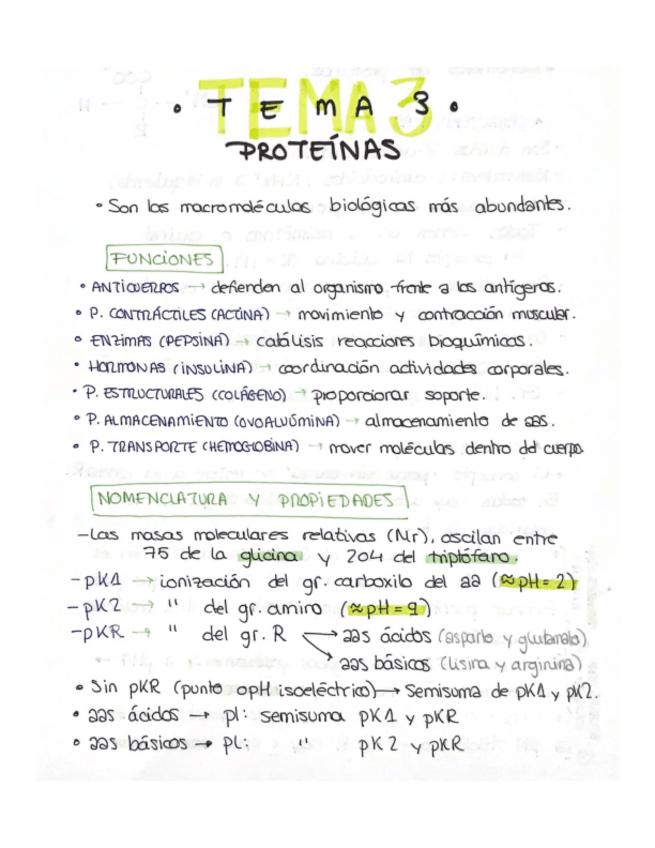 • TEMA 3 •
PROTEÍNAS
• Son las macromoléculas biológicas más abundantes.
FUNCIONES
• ANTICUERPOS → defienden al organismo frente a los antígenos.
• P. CONTRÁCTILES (ACTINA) → movimiento y contracción muscular.
• ENZIMAS (PEPSINA) → catálisis reacciones bioquímicas.
• HORMONAS (INSULINA) → coordinación actividades corporales.
• P. ESTRUCTURALES (COLÁGENO) → proporcionar soporte.
• P. ALMACENAMIENTO (OVOALVÚMINA) → almacenamiento de aas.
• P. TRANSPORTE (HEMOGLOBINA) → mover moléculas dentro del cuerpo.
NOMENCLATURA Y PROPIEDADES
- Las masas moleculares relativas (Mr), oscilan entre
75 de la glicina y 204 del triptófano.
- pK1 → ionización del gr. carboxilo del aa (≈pH=2)
- pK2 " del gr. amino (≈pH=9)
- pKR → " del gr. R → aas ácidos (asparto y glutamato)
→ aas básicos (lisina y arginina)
• Sin pKR (punto o pH isoeléctrico) → Semisuma de pK1 y pK2.
• aas ácidos → pI: Semisuma pK1 y pKR
• aas básicos → pI: " pK2 y pKR